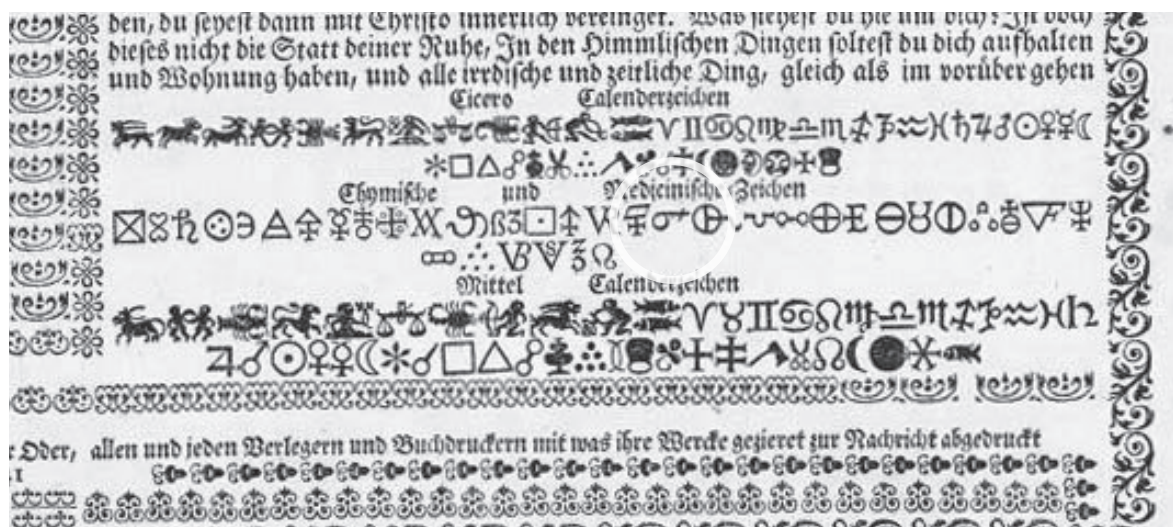 den, du seyest dann mit Christo innerlich vereiniget. Was stehest du hie um dich? Ist doch
dieses nicht die Statt deiner Ruhe, In den Himmlischen Dingen soltest du dich aufhalten
und Wohnung haben, und alle irrdische und zeitliche Ding, gleich als im vorüber gehen
Cicero Calenderzeichen
♈︎ ♊︎ ♋︎ ♌︎ ♍︎ ♎︎ ♏︎ ♐︎ ♑︎ ♒︎ ♓︎ ♄ ♃ ♂ ☉ ♀ ☿ ☾
Chymische und Medicinische Zeichen
Mittel Calenderzeichen
♈︎ ♉︎ ♊︎ ♋︎ ♌︎ ♍︎ ♎︎ ♏︎ ♐︎ ♑︎ ♒︎ ♓︎ ♄
Oder, allen und jeden Verlegern und Buchdruckern mit was ihre Wercke gezieret zur Nachricht abgedruckt